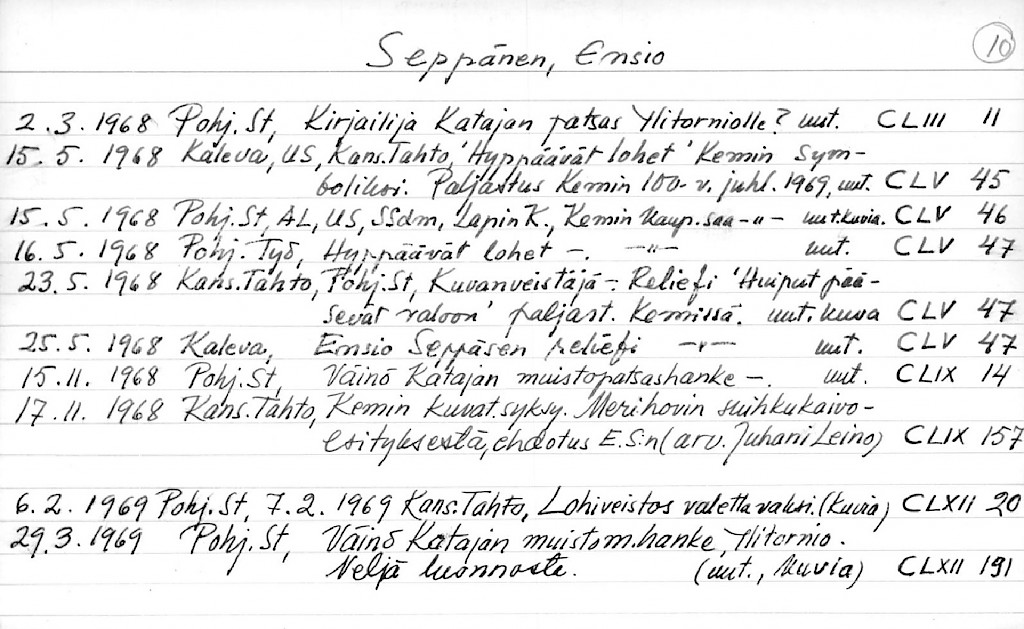 10
Seppänen, Ensio
2.3.1968 Pohj.St, Kirjailija Katajan patsas Ylitorniolle? uut. CLIII 11
15.5.1968 Kaleva, US, Kans.Tahto, 'Hyppäävät lohet' Kemin sym-
boliksi. Paljastus Kemin 100-v. juhl. 1969, uut. CLV 45
15.5.1968 Pohj.St, AL, US, SSdm, Lapin K., Kemin kaup. saa -"- uut.kuvia. CLV 46
16.5.1968 Pohj.Työ, Hyppäävät lohet -. -"- uut. CLV 47
23.5.1968 Kans.Tahto, Pohj.St, Kuvanveistäjä -. Reliefi 'Huiput pää-
sevät valoon' paljast. Kemissä. uut.kuva CLV 47
25.5.1968 Kaleva, Ensio Seppäsen reliefi -"- uut. CLV 47
15.11.1968 Pohj.St, Väinö Katajan muistopatsashanke -. uut. CLIX 14
17.11.1968 Kans.Tahto, Kemin kuvat.syksy. Merihovin suihkukaivo-
esityksestä, ehdotus E.S:n (arv. Juhani Leino) CLIX 157
6.2.1969 Pohj.St, 7.2.1969 Kans.Tahto, Lohiveistos valettavaksi. (kuvia) CLXII 20
29.3.1969 Pohj.St, Väinö Katajan muistom.hanke, Ylitornio.
Neljä luonnosta. (uut., kuvia) CLXII 191